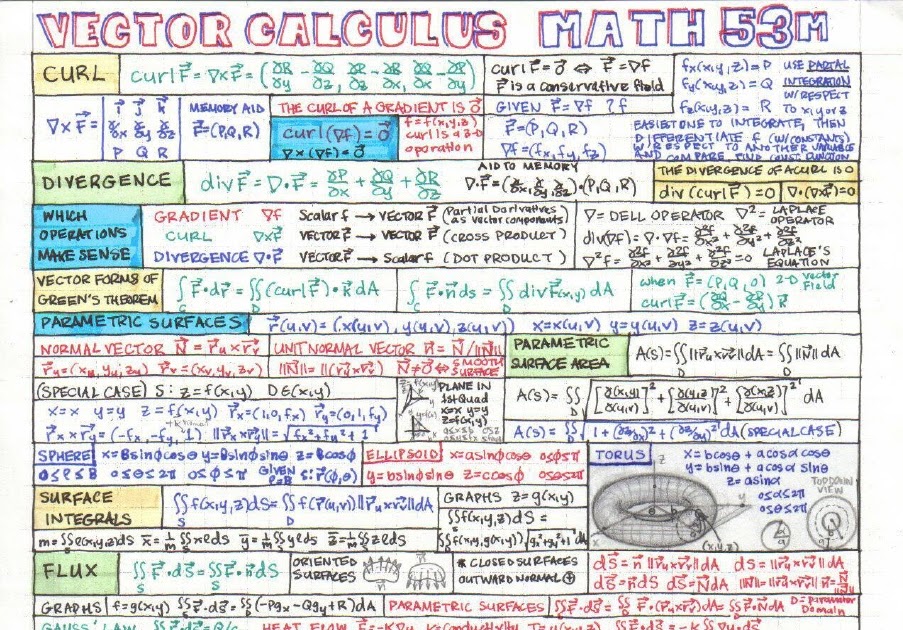 VECTOR CALCULUS MATH 53M
CURL
curl F⃗ = ∇×F⃗ = (∂R/∂y - ∂Q/∂z, ∂P/∂z - ∂R/∂x, ∂Q/∂x - ∂P/∂y)
curl F⃗ = 0⃗ ⇔ F⃗ = ∇f
F⃗ is a conservative field
fx(x,y,z) = P USE PARTIAL
fy(x,y,z) = Q INTEGRATION
W/RESPECT
fz(x,y,z) = R TO x, y or z
EASIEST ONE TO INTEGRATE, THEN
DIFFERENTIATE f (W/CONSTANTS)
W/RESPECT TO ANOTHER VARIABLE
AND COMPARE, FIND CONST FUNCTION
∇×F⃗ = | i⃗ j⃗ k⃗ |
∂/∂x ∂/∂y ∂/∂z
P Q R
MEMORY AID
F⃗ = (P,Q,R)
THE CURL OF A GRADIENT IS 0⃗
curl(∇f) = 0⃗
∇×(∇f) = 0⃗
f = f(x,y,z)
curl is a 3-D
operation
GIVEN F⃗ = ∇f ? f
F⃗ = (P,Q,R)
∇f = (fx, fy, fz)
DIVERGENCE
div F⃗ = ∇·F⃗ = ∂P/∂x + ∂Q/∂y + ∂R/∂z
AID TO MEMORY
∇·F⃗ = (∂/∂x, ∂/∂y, ∂/∂z)·(P,Q,R)
THE DIVERGENCE OF A CURL IS 0
div(curl F⃗) = 0 ∇·(∇×F⃗) = 0
WHICH
OPERATIONS
MAKE SENSE
GRADIENT ∇f Scalar f → VECTOR F⃗ (Partial Derivatives as vector components)
CURL ∇×F⃗ VECTOR F⃗ → VECTOR F⃗ (CROSS PRODUCT)
DIVERGENCE ∇·F⃗ VECTOR F⃗ → Scalar f (DOT PRODUCT)
∇ = DELL OPERATOR ∇² = LAPLACE OPERATOR
div(∇f) = ∇·∇f = ∂²f/∂x² + ∂²f/∂y² + ∂²f/∂z²
∇²f = ∂²f/∂x² + ∂²f/∂y² + ∂²f/∂z² = 0 LAPLACE'S EQUATION
VECTOR FORMS OF
GREEN'S THEOREM
∫ F⃗·dr⃗ = ∬ (curl F⃗)·k⃗ dA
∫ F⃗·n⃗ ds = ∬ div F⃗(x,y) dA
when F⃗ = (P,Q,0) 2-D vector field
curl F⃗ = (∂Q/∂x - ∂P/∂y) k⃗
PARAMETRIC SURFACES r⃗(u,v) = (x(u,v), y(u,v), z(u,v)) x=x(u,v) y=y(u,v) z=z(u,v)
NORMAL VECTOR N⃗ = r⃗u × r⃗v
r⃗u = (xu, yu, zu) r⃗v = (xv, yv, zv)
UNIT NORMAL VECTOR n⃗ = N⃗/||N⃗||
||N⃗|| = ||(r⃗u×r⃗v)|| N⃗≠0 ⇔ SMOOTH SURFACE
PARAMETRIC
SURFACE AREA
A(S) = ∬ ||r⃗u×r⃗v|| dA = ∬ ||N⃗|| dA
(SPECIAL CASE) S: z=f(x,y) D∈(x,y)
x=x y=y z=f(x,y) r⃗x=(1,0,fx) r⃗y=(0,1,fy)
r⃗x×r⃗y = (-fx, -fy, 1) ||r⃗x×r⃗y|| = √(fx²+fy²+1)
PLANE IN
1st Quad
x=x y=y
z=f(x,y)
A(S) = ∬ √([∂(x,y)/∂(u,v)]² + [∂(y,z)/∂(u,v)]² + [∂(x,z)/∂(u,v)]²) dA
A(S) = ∬ √(1+(∂z/∂x)²+(∂z/∂y)²) dA (SPECIAL CASE)
SPHERE x=ρsinφcosθ y=ρsinφsinθ z=ρcosφ
0≤ρ≤B 0≤θ≤2π 0≤φ≤π GIVEN ρ=B S: r⃗(φ,θ)
ELLIPSOID x=asinφcosθ 0≤φ≤π
y=bsinθsinφ z=ccosφ 0≤θ≤2π
TORUS
x=bcosθ + acosαcosθ
y=bsinθ + acosαsinθ
z=asinα
0≤α≤2π
0≤θ≤2π
TOPDOWN
VIEW
(x,y,z)
SURFACE
INTEGRALS
∬ f(x,y,z)dS = ∬ f(r⃗(u,v)) ||r⃗u×r⃗v|| dA
GRAPHS z=g(x,y)
∬ f(x,y,z)dS =
∬ f(x,y,g(x,y)) √(gx²+gy²+1) dA
m=∬ρ(x,y,z)dS x̄=1/m ∬xρdS ȳ=1/m ∬yρdS z̄=1/m ∬zρdS
FLUX
∬ F⃗·dS⃗ = ∬ F⃗·n⃗ dS
ORIENTED
SURFACES
* CLOSED SURFACES
OUTWARD NORMAL ⊕
dS⃗ = n⃗ ||r⃗u×r⃗v|| dA dS = ||r⃗u×r⃗v|| dA
dS⃗ = n⃗dS dS⃗ = N⃗dA ||N⃗|| = ||r⃗u×r⃗v|| n⃗ = N⃗/||N⃗||
GRAPHS f=g(x,y) ∬F⃗·dS⃗ = ∬(-Pgx - Qgy + R)dA
PARAMETRIC SURFACES ∬F⃗·dS⃗ = ∬F⃗·(r⃗u×r⃗v)dA = ∬F⃗·N⃗dA D=parameter Domain
GAUSS' LAW
HEAT FLOW